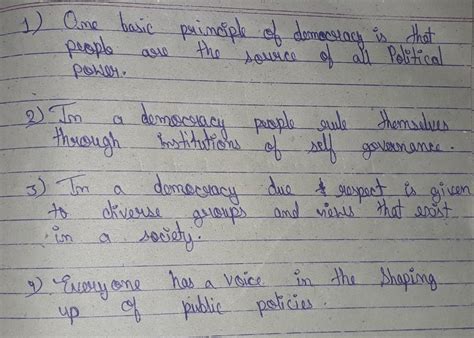 1) One basic principle of democracy is that
people are the source of all Political
power.
2) In a democracy people rule themselves
through institutions of self governance.
3) In a democracy due & respect is given
to diverse groups and views that exist
in a society.
4) Every one has a voice in the shaping
up of public policies.